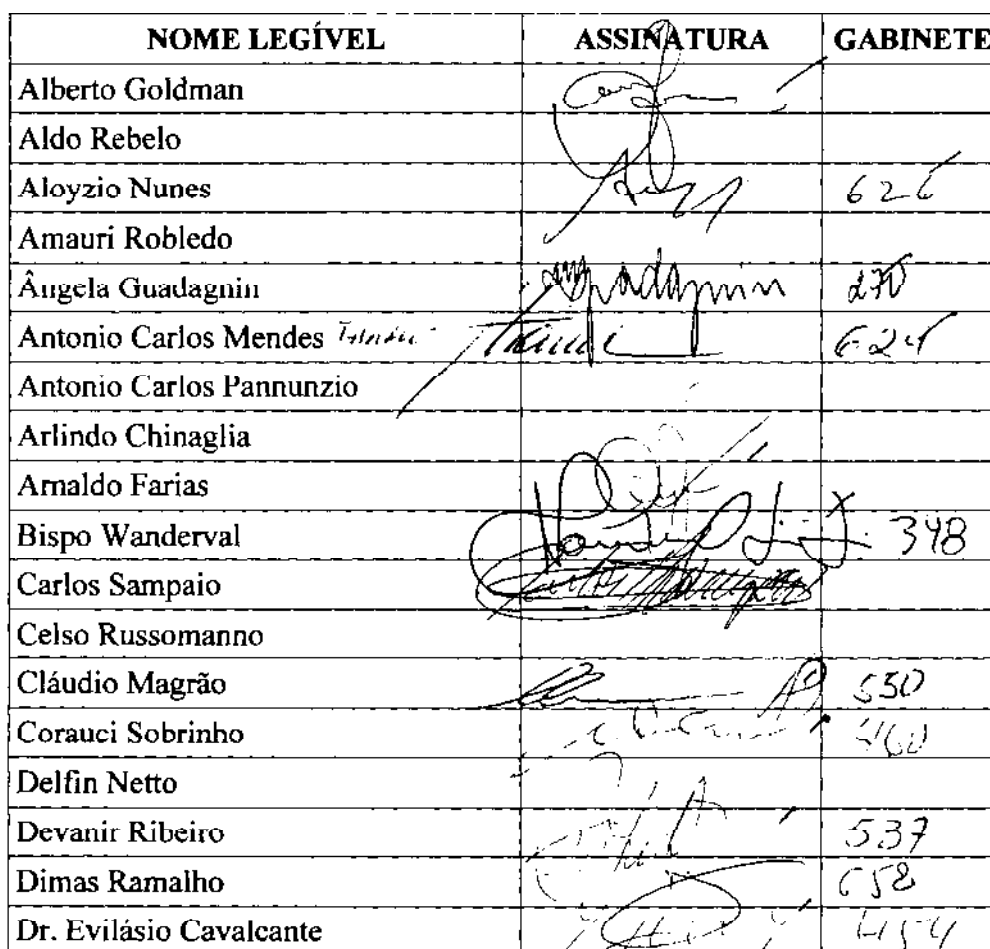 NOME LEGÍVEL ASSINATURA GABINETE
Alberto Goldman
Aldo Rebelo
Aloyzio Nunes 626
Amauri Robledo
Ângela Guadagnin Guadagnin 270
Antonio Carlos Mendes Thame Thame 624
Antonio Carlos Pannunzio
Arlindo Chinaglia
Arnaldo Farias
Bispo Wanderval 348
Carlos Sampaio
Celso Russomanno
Cláudio Magrão 530
Corauci Sobrinho 460
Delfin Netto
Devanir Ribeiro 537
Dimas Ramalho 658
Dr. Evilásio Cavalcante 454